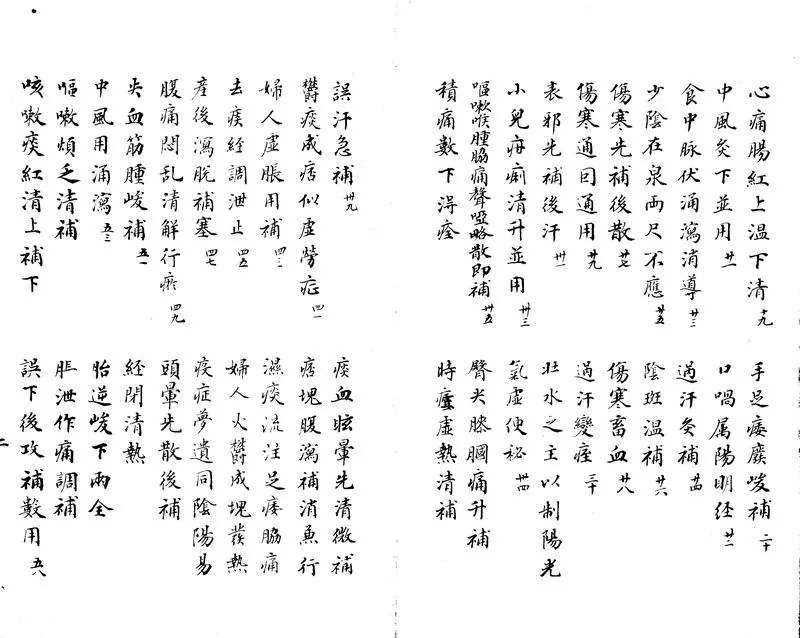 心痛腸紅上温下清 十九
手足痿癈峻補 二十
中風灸下並用 廿一
口喎属陽明経 廿二
食中脉伏涌瀉消導 廿三
過汗灸補 廿四
少陰在泉兩尺不應 廿五
陰斑温補 廿六
傷寒先補後散 廿七
傷寒畜血 廿八
傷寒通囙通用 廿九
過汗變痓 三十
表邪先補後汗 卅一
壯水之主以制陽光
小兒疳痢清升並用 卅三
氣虚便秘 卅四
嘔嗽喉腫脇痛聲啞略散即補 卅五
臀尖膝膕痛升補
積痛數下淂痊
時瘧虚熱清補
誤汗急補 卅九
痰血眩暈先清微補
欝痰成痞似虚勞症 四一
痞塊腹瀉補消魚行
婦人虚脹用補 四三
濕痰流注足痿脇痛
去痰経調泄止 四五
婦人火欝成塊發熱
產後瀉脫補塞 四七
痰症夢遺同陰陽易
腹痛悶乱清解行瘀 四九
頭暈先散後補
失血筋腫峻補 五一
経閉清熱
中風用涌瀉 五三
胎逆峻下兩全
嘔嗽煩乏清補
脹泄作痛調補
咳嗽痰紅清上補下
誤下後攻補數用 五八